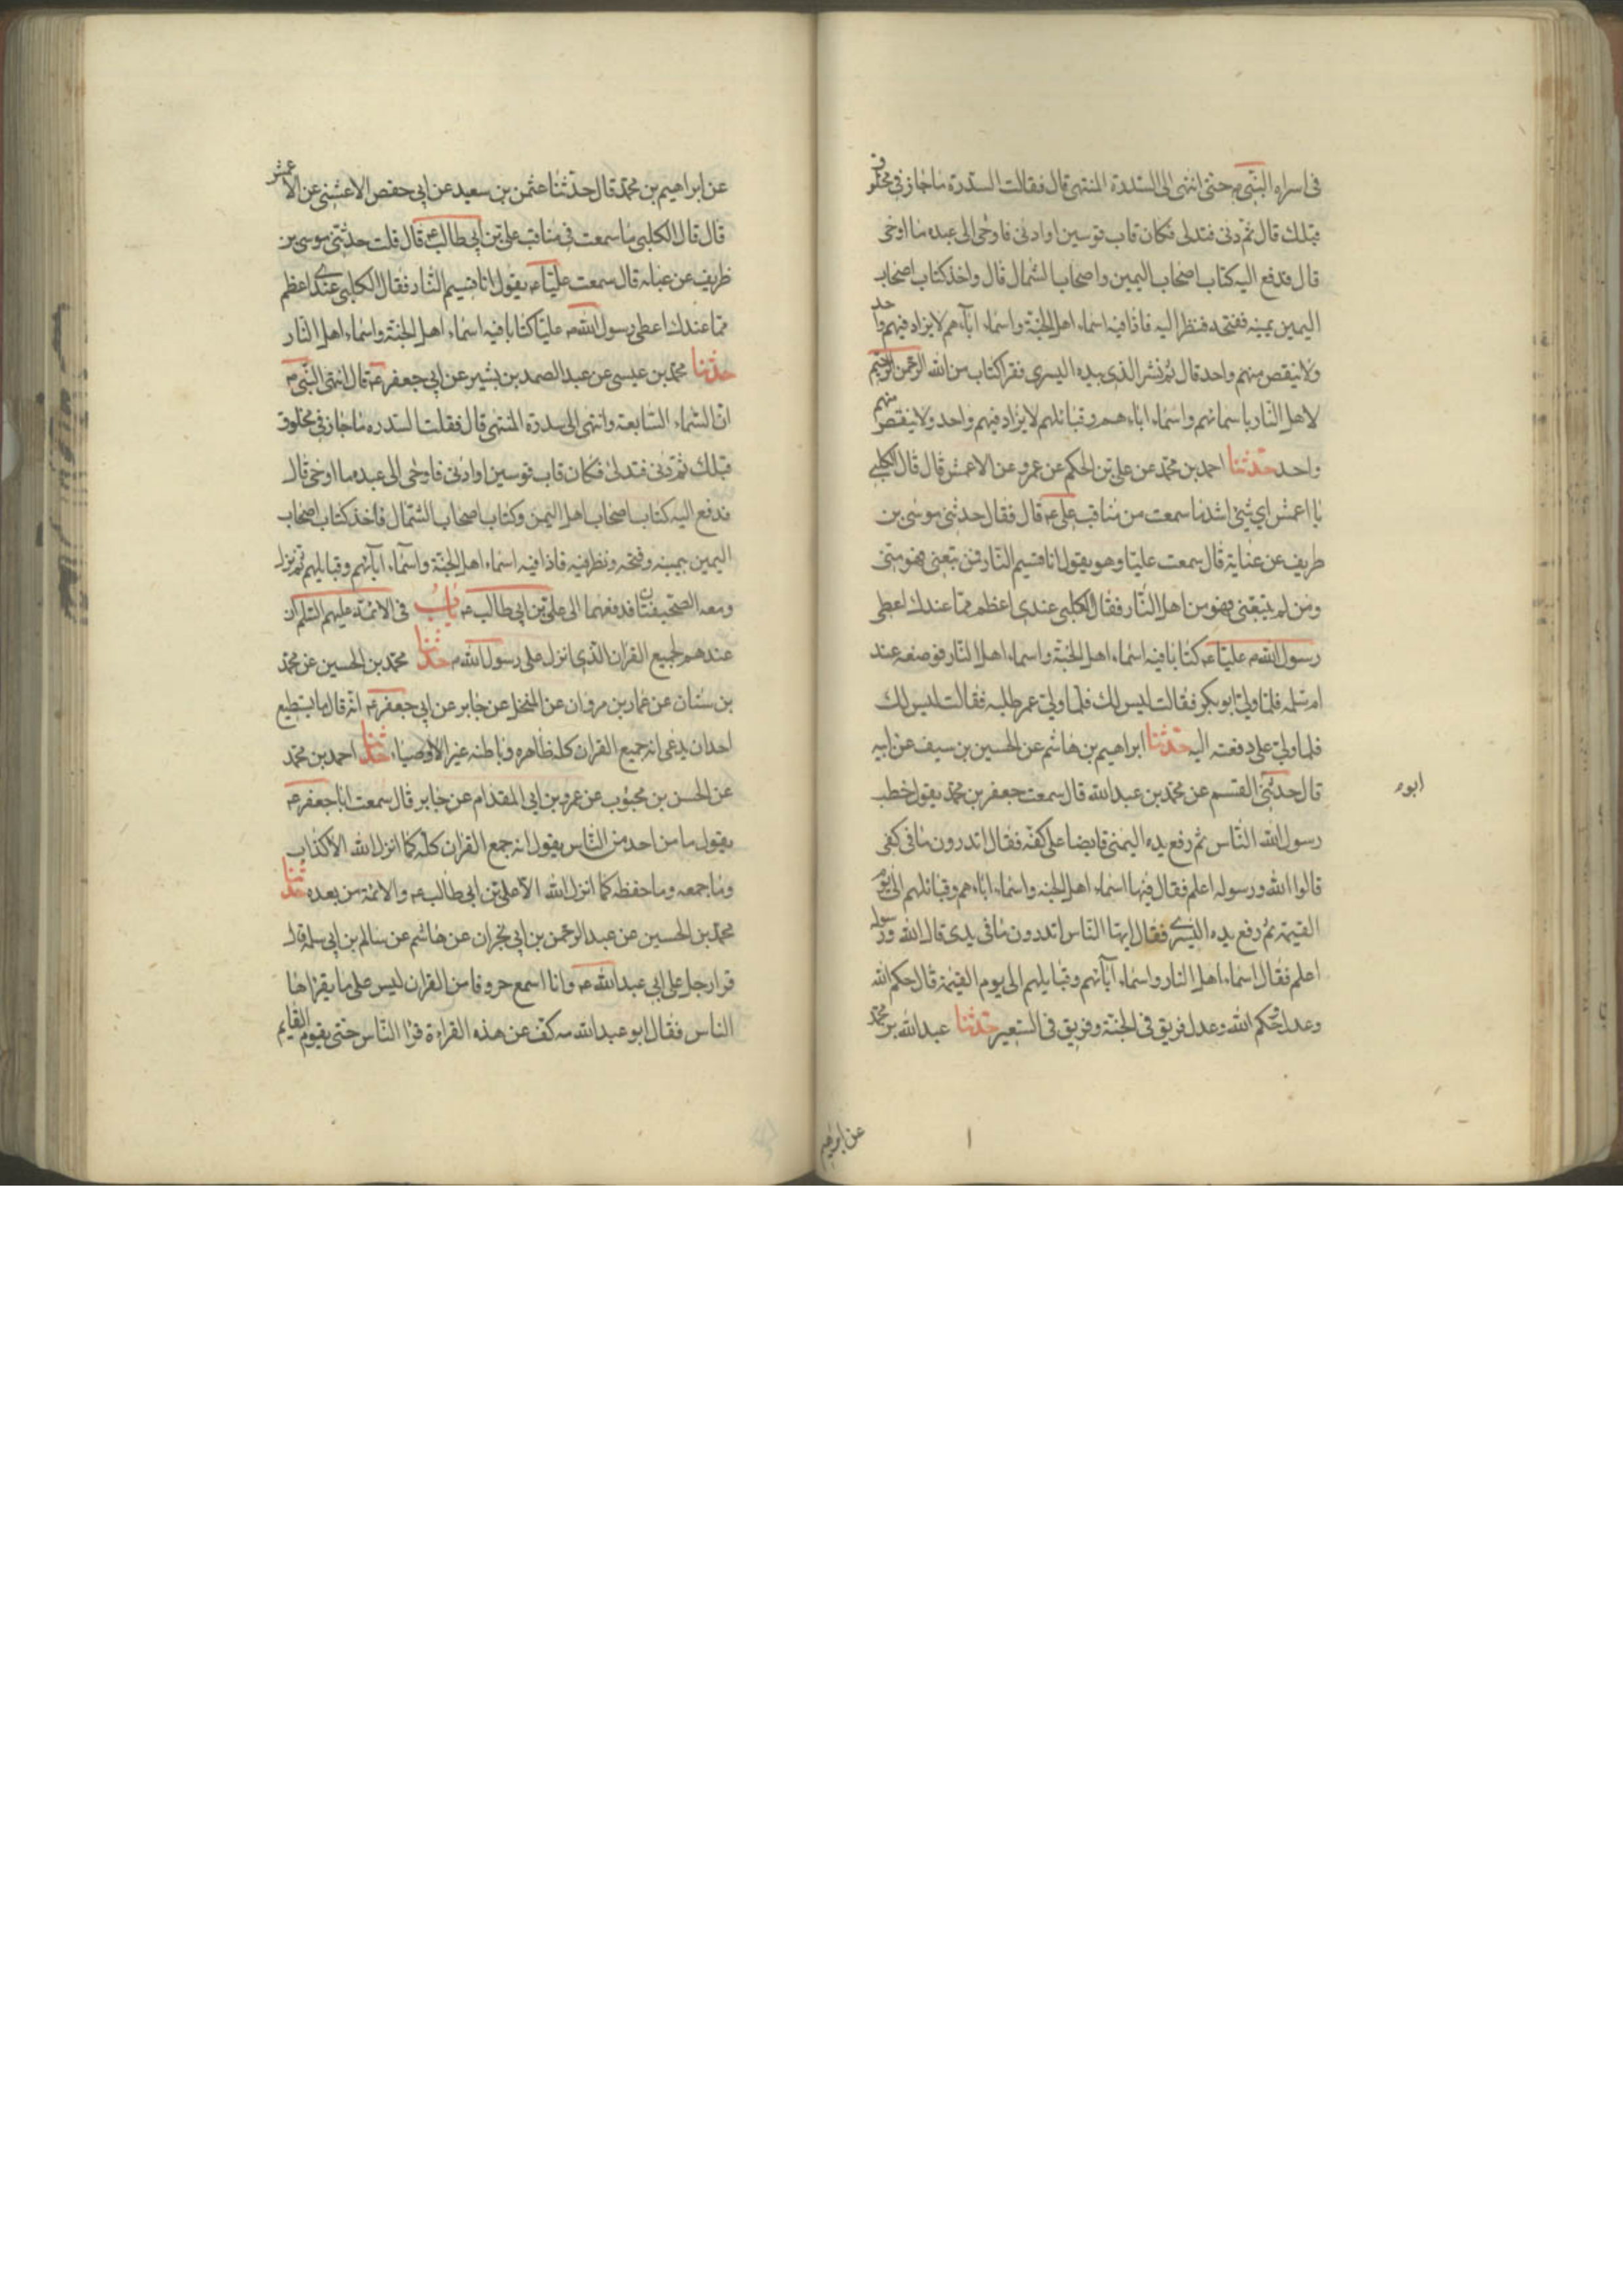 فى اسراء النبى ص حتى انتهى الى السدرة المنتهى قال فقالت السدرة ما جازنى مخلوق
قبلك قال ثم دنى فتدلى فكان قاب قوسين او ادنى فاوحى الى عبده ما اوحى
قال فدفع اليه كتاب اصحاب اليمين واصحاب الشمال قال واخذ كتاب اصحاب
اليمين بيمينه ففتحه فنظر اليه فاذا فيه اسماء اهل الجنة واسماء اباءهم لا يزاد فيهم واحد
ولا ينقص منهم واحد قال ثم نشر الذى بيده اليسرى فقرا كتاب من الله الرحمن الرحيم
لاهل النار باسمائهم واسماء اباءهم وقبائلهم لا يزاد فيهم واحد ولا ينقص منهم
واحد حدثنا احمد بن محمد عن على بن الحكم عن عمرو عن الاعمش قال قال الكلبى
يا اعمش اى شئ اشد ما سمعت من مناقب على ع قال فقال حدثنى موسى بن
طريف عن عباية قال سمعت عليا وهو يقول انا قسيم النار فمن تبعنى فهو منى
ومن لم يتبعنى فهو من اهل النار فقال الكلبى عندى اعظم مما عندك اعطى
رسول الله ص عليا ع كتابا فيه اسماء اهل الجنة واسماء اهل النار فوضعه عند
ام سلمه فلما ولى ابو بكر فقالت ليس لك فلما ولى عمر طلبه فقالت ليس لك
فلما ولى على دفعته اليه حدثنا ابراهيم بن هاشم عن الحسين بن سيف عن ابيه
قال حدثنى القسم عن محمد بن عبد الله قال سمعت جعفر بن محمد يقول خطب
ابوه
رسول الله الناس ثم رفع يده اليمنى قابضا على كفه فقال اتدرون ما فى كفى
قالوا الله ورسوله اعلم فقال فيها اسماء اهل الجنه واسماء اباءهم وقبائلهم الى يوم
القيمة ثم رفع يده اليسرى فقال ايها الناس اتدرون ما فى يدى قال الله ورسوله
اعلم فقال اسماء اهل النار واسماء آبائهم وقبايلهم الى يوم القيمة قال حكم الله
وعدل حكم الله وعدل فريق فى الجنة وفريق فى السعير حدثنا عبد الله بن محمد
عن ابرهيم
عن ابراهيم بن محمد قال حدثنا عثمن بن سعيد عن ابى حفص الاعشى عن الاعمش
قال قال الكلبى ما سمعت فى مناقب على بن ابى طالب ع قال قلت حدثنى موسى بن
ظريف عن عبايه قال سمعت عليا ع يقول انا قسيم النار فقال الكلبى عندى اعظم
مما عندك اعطى رسول الله ص عليا كتابا فيه اسماء اهل الجنة واسماء اهل النار
حدثنا محمد بن عيسى عن عبد الصمد بن بشير عن ابى جعفر ع قال انتهى النبى ص
الى السماء السابعة وانتهى الى سدرة المنتهى قال فقلت السدره ما جازنى مخلوق
قبلك ثم دنى فتدلى فكان قاب قوسين او ادنى فاوحى الى عبده ما اوحى قال
فدفع اليه كتاب اصحاب اهل اليمن وكتاب اصحاب الشمال فاخذ كتاب اصحاب
اليمين بيمينه وفتحه ونظر فيه فاذا فيه اسماء اهل الجنة واسماء آبائهم وقبايلهم ثم نزل
ومعه الصحيفتان فدفعهما الى على بن ابى طالب ع باب فى الائمة عليهم السلم ان
عندهم لجميع القران الذى انزل على رسول الله ص حدثنا محمد بن الحسين عن محمد
بن سنان عن عمار بن مروان عن المنخل عن جابر عن ابى جعفر ع انه قال ما يستطيع
احد ان يدعى انه جميع القران كله ظاهره وباطنه غير الاوصياء حدثنا احمد بن محمد
عن الحسن بن محبوب عن عمرو بن ابى المقدام عن جابر قال سمعت ابا جعفر ع
يقول ما من احد من الناس يقول انه جمع القران كله كما انزل الله الا كذاب
وما جمعه وما حفظه كما انزل الله الا على بن ابى طالب ع والائمة من بعده حدثنا
محمد بن الحسين عن عبد الرحمن بن ابى نجران عن هاشم عن سالم بن ابى سلمة قال
قرا رجل على ابى عبد الله ع وانا اسمع حروفا من القران ليس على ما يقراها
الناس فقال ابو عبد الله مه كف عن هذه القراءة قرا الناس حتى يقوم القايم